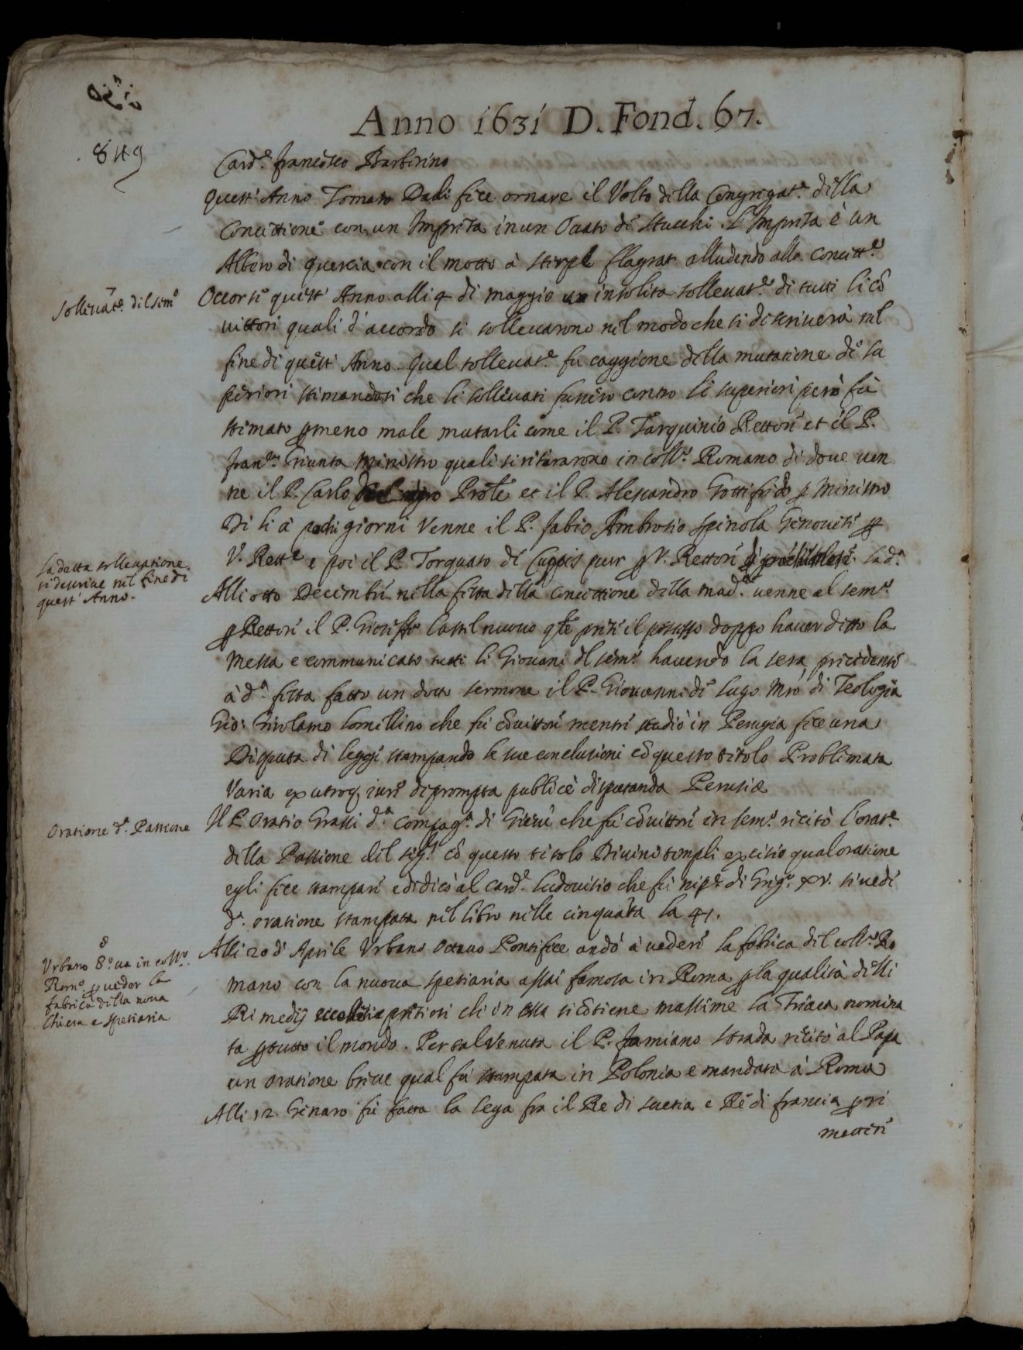 849
Anno 1631 D. Fond. 67.
Card.e Francesco Barberino
Quest'Anno Tomaso Dadi fece ornare il Volto della Congregat.e della
Concettione con un Impresa in un Ovato di Stucchi. L'Impresa è un
Albero di quercia con il motto à stirpe flagrat alludendo alla Concett.e
Sollevat.e del Sem.o
Occorse quest'Anno alli 4 di Maggio un insolita sollevat.e di tutti li cõ
vittori quali d'accordo si sollevarono nel modo che si descriverà nel
fine di quest'Anno. Qual sollevat.e fu caggione della mutatione de su
periori stimandosi che li sollevati fussero contro li superiori però fù
stimato p meno male mutarli come il P. Tarquinio Rettore et il P.
Fran.co Giunta Ministro quali si ritirarono in Coll.o Romano di dove ven
ne il P. Carlo et il P. Alessandro Gottifredo p Ministro
Di li à pochi giorni venne il P. Fabio Ambrosio Spinola Genovese p
V. Rett.e e poi il P. Torquato de Cuppis pur p V. Rettore
La detta sollevatione
si descrive nel fine di
quest'Anno.
Alli otto Decembre nella festa della Concettione della Mad.a venne al Sem.o
p Rettore il P. Gioseffo Castelnuovo q.le prese il possesso doppo haver detto la
Messa e communicato tutti li Giovani del Sem.o havendo la sera precedente
à d.a festa fatto un dotto sermone il P. Giovanni de Lugo Mro di Teologia
Gio: Girolamo Lomellino che fù cõvittore mentre studiò in Perugia fece una
Disputa di leggi stampando le sue conclusioni cõ questo titolo Problemata
Varia ex utroq iure deprompta publicè disputanda Perusiæ
Oratione d.a Passione
Il P. Oratio Grassi d.a Compag.a di Giesù che fù cõvittore in Sem.o recitò l'orat.e
della Passione del Sig.re cõ questo titolo Divini templi excisio qual oratione
egli fece stampare e dedicò al Card.e Ludovisio che fù nip.e di Greg.o XV. si vede
d.a oratione stampata nel libro nelle cinquãta la 41.
Urbano 8.o va in Coll.o
Rom.o p veder la
fabrica della nova
Chiesa e spetiaria
Alli 20 d'Aprile Urbano Ottavo Pontifice andò à vedere la fabrica del Coll.o Ro
mano con la nuova spetiaria assai famosa in Roma p la qualità delli
Remedij pretiosi che in essa si cõtiene massime la Triaca nomina
ta p tutto il mondo. Per tal venuta il P. Famiano Strada recitò al Papa
un oratione breve qual fù stampata in Polonia e mandata à Roma
Alli 12 Genaro fù fatta la lega fra il Re di Suetia e Rè di Francia p ri
mettere